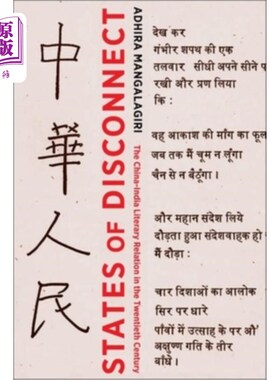 中
華
人
民
原版
海外
STATES OF DISCONNECT
The China-India Literary Relation in the Twentieth Century
ADHIRA MANGALAGIRI
देख कर
गंभीर शपथ की एक
तलवार सीधी अपने सीने प
रखी और प्रण लिया
कि :
वह आकाश की मांग का फूल
जब तक मैं चूम न लूंगा
चैन से न बैठूंगा ।
और महान संदेश लिये
दौड़ता हुआ संदेशवाहक हो
मैं दौड़ा :
चार दिशाओं का आलोक
सिर पर धारे
पाँवों में उत्साह के पर औ'
अक्षुण्ण गति के तीर
बाँधे ।